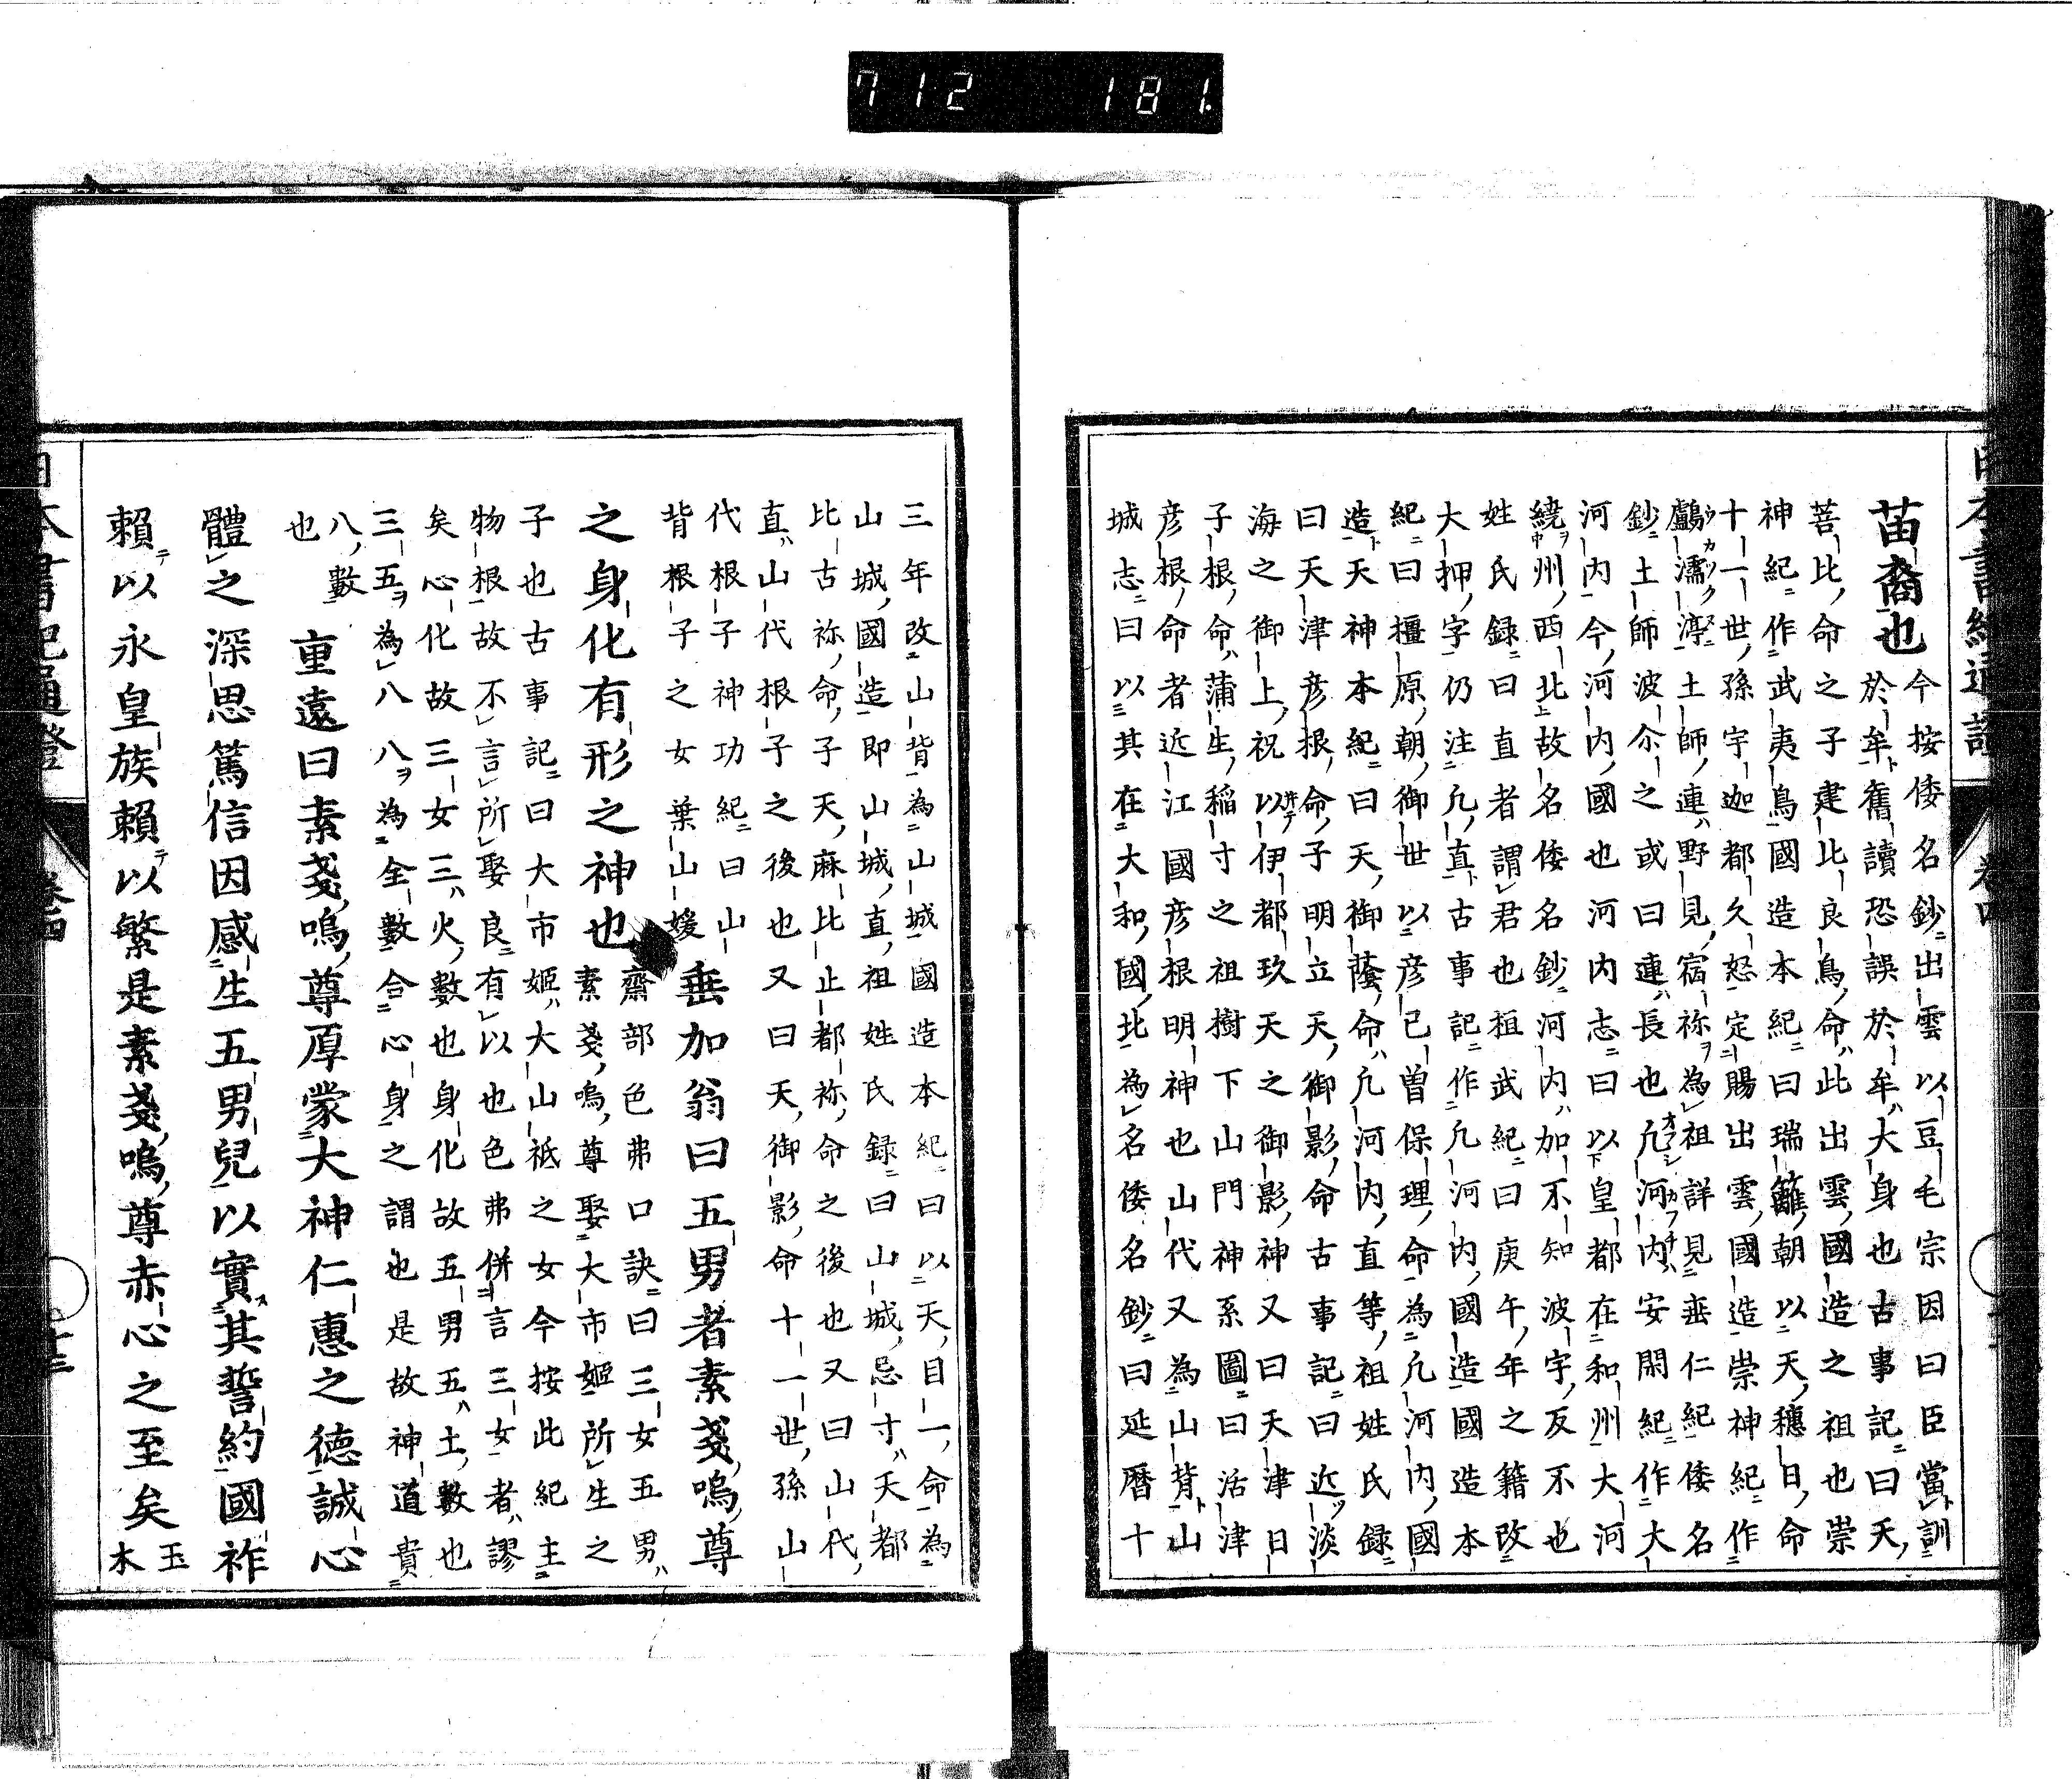 712 181.
苗裔也
今按倭名鈔出雲以豆毛宗因曰臣當訓
於牟舊讀恐誤於牟大身也古事記曰天
菩比命之子建比良鳥命此出雲國造之祖也崇
神紀作武夷鳥國造本紀曰瑞籬朝以天穗日命
十一世孫宇迦都久怒定賜出雲國造崇神紀作
鸕濡渟土師連野見宿祢為祖詳見垂仁紀倭名
鈔土師波尓之或曰連長也凡河内安閑紀作大
河内今河内國也河内志曰以皇都在和州大河
繞州西北故名倭名鈔河内加不知波宇反不也
姓氏録曰直者謂君也祖武紀曰庚午年之籍改
大押字仍注凡直古事記作凡河内國造國造本
紀曰橿原朝御世以彦己曽保理命為凡河内國
造天神本紀曰天御蔭命凡河内直等祖姓氏録
曰天津彦根命子明立天御影命古事記曰近淡
海之御上祝以伊都玖天之御影神又曰天津日
子根命蒲生稲寸之祖樹下山門神系圖曰活津
彦根命者近江國彦根明神也山代又為山背山
城志曰以其在大和國北為名倭名鈔曰延暦十
三年改山背為山城國造本紀曰以天目一命為
山城國造即山城直祖姓氏録曰山城忌寸天都
比古祢命子天麻比止都祢命之後也又曰山代
直山代根子之後也又曰天御影命十一世孫山
代根子神功紀曰山
背根子之女葉山媛
垂加翁曰五男者素戔嗚尊
之身化有形之神也
齋部色弗口訣曰三女五男
素戔嗚尊娶大市姫所生之
子也古事記曰大市姫大山祇之女今按此紀主
物根故不言所娶良有以也色弗併言三女者謬
矣心化故三女三火數也身化故五男五土數也
三五為八八為全數合心身之謂也是故神道貴
八數
也
重遠曰素戔嗚尊厚蒙大神仁惠之徳誠心
體之深思篤信因感生五男兒以實其誓約國祚
賴以永皇族賴以繁是素戔嗚尊赤心之至矣
玉
木